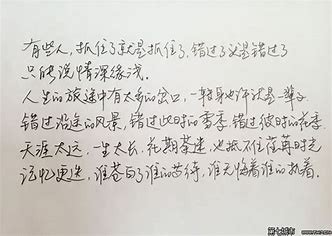 有些人,抓住了就是抓住了,错过了就是错过了
只能说情深缘浅。
人生的旅途中有太多的岔口,一转身也许就是一辈子
错过沿途的风景,错过此时的雪季,错过彼时的花季
天涯太远,一生太长,花期荼迷,也抵不住荏苒时光
记忆更迭,谁苍白了谁的等待,谁无悔着谁的执着。
第七城市